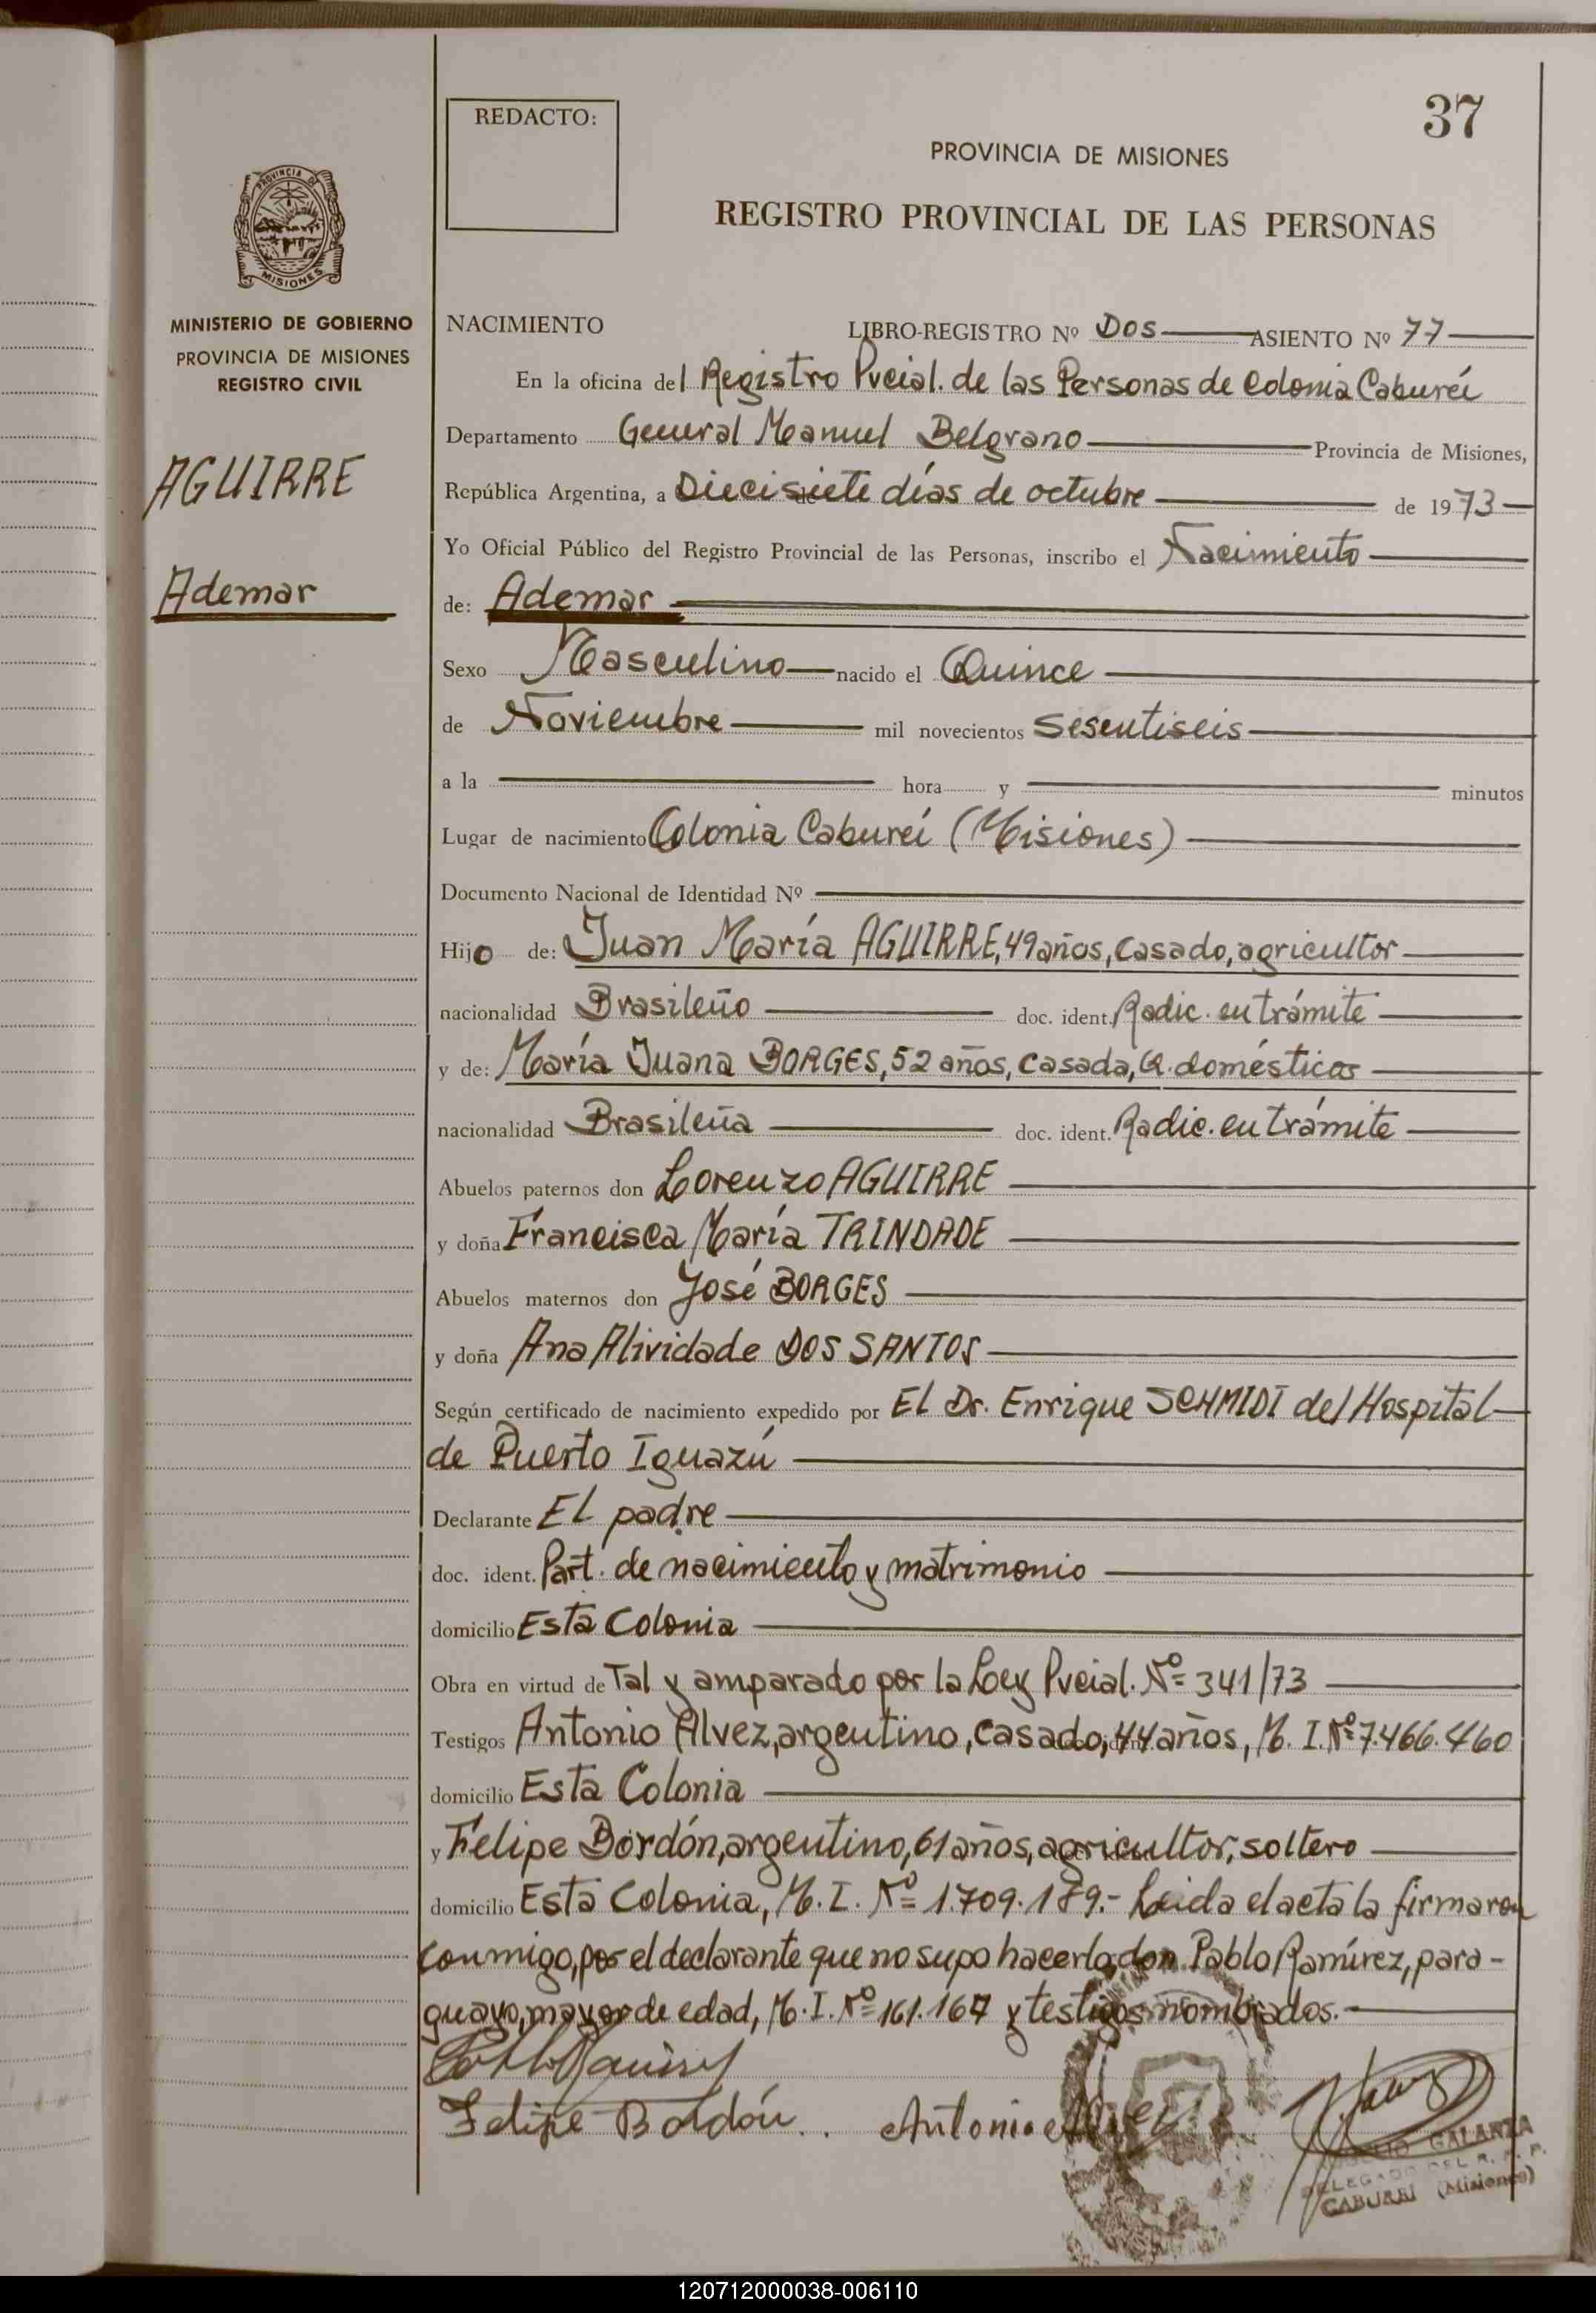 37
REDACTO:
PROVINCIA DE MISIONES
REGISTRO PROVINCIAL DE LAS PERSONAS
PROVINCIA DE
MISIONES
MINISTERIO DE GOBIERNO
PROVINCIA DE MISIONES
REGISTRO CIVIL
AGUIRRE
Ademar
NACIMIENTO LIBRO-REGISTRO Nº Dos ASIENTO Nº 77
En la oficina del Registro Pvcial. de las Personas de Colonia Caburéi
Departamento General Manuel Belgrano Provincia de Misiones,
República Argentina, a Diecisiete días de octubre de 1973
Yo Oficial Público del Registro Provincial de las Personas, inscribo el Nacimiento
de: Ademar
Sexo Masculino nacido el Quince
de Noviembre mil novecientos Sesentiseis
a la hora y minutos
Lugar de nacimiento Colonia Caburéi (Misiones)
Documento Nacional de Identidad Nº
Hijo de: Juan María AGUIRRE, 49 años, casado, agricultor
nacionalidad Brasileño doc. ident. Radic. en trámite
y de: María Juana BORGES, 52 años, casada, Q. domésticos
nacionalidad Brasileña doc. ident. Radic. en trámite
Abuelos paternos don Lorenzo AGUIRRE
y doña Francisca María TRINDADE
Abuelos maternos don José BORGES
y doña Ana Alividade DOS SANTOS
Según certificado de nacimiento expedido por El Dr. Enrique SCHMIDT del Hospital
de Puerto Iguazú
Declarante El padre
doc. ident. Part. de nacimiento y matrimonio
domicilio Esta Colonia
Obra en virtud de Tal y amparado por la Ley Pvcial. Nº 341/73
Testigos Antonio Alvez, argentino, casado, 44 años, M. I. Nº 7.466.460
domicilio Esta Colonia
y Felipe Bordón, argentino, 61 años, agricultor, soltero
domicilio Esta Colonia, M. I. Nº 1.709.189.- Leida el acta la firmaron
conmigo, por el declarante que no supo hacerlo, don Pablo Ramírez, para-
guayo, mayor de edad, M. I. Nº 161.167 y testigos nombrados.-
Pablo Ramirez
Felipe Bordón Antonio Alvez
GALARZA
DELEGADO DEL R. P. P.
CABUREI (Misiones)
120712000038-006110